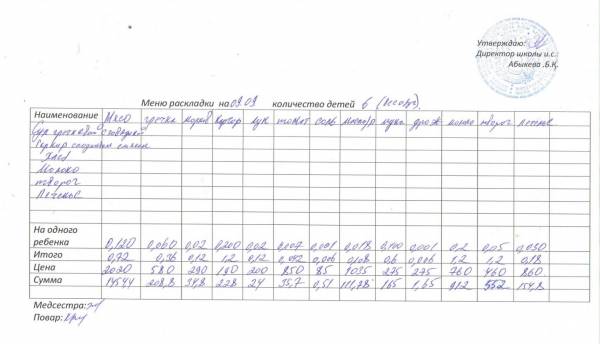 Утверждаю:
Директор школы и.с.:
Абыкева .Б.Қ.
Меню раскладки на 09.09 количество детей 6
Наименование Мясо гречка морков картоф лук томат соль масло/р мука дрож молоко творог печенье
Суп гречневый с говядиной
Гарнир
Хлеб
Молоко
творог
Печенье
На одного
ребенка 0,120 0,060 0,02 0,200 0,02 0,007 0,001 0,018 0,100 0,001 0,2 0,05 0,030
Итого 0,72 0,36 0,12 1,2 0,12 0,042 0,006 0,108 0,6 0,006 1,2 1,2 0,18
Цена 2020 580 290 190 200 850 85 1035 275 275 760 460 860
Сумма 1454,4 208,8 34,8 228 24 35,7 0,51 111,78 165 1,65 912 552 154,8
Медсестра:
Повар: